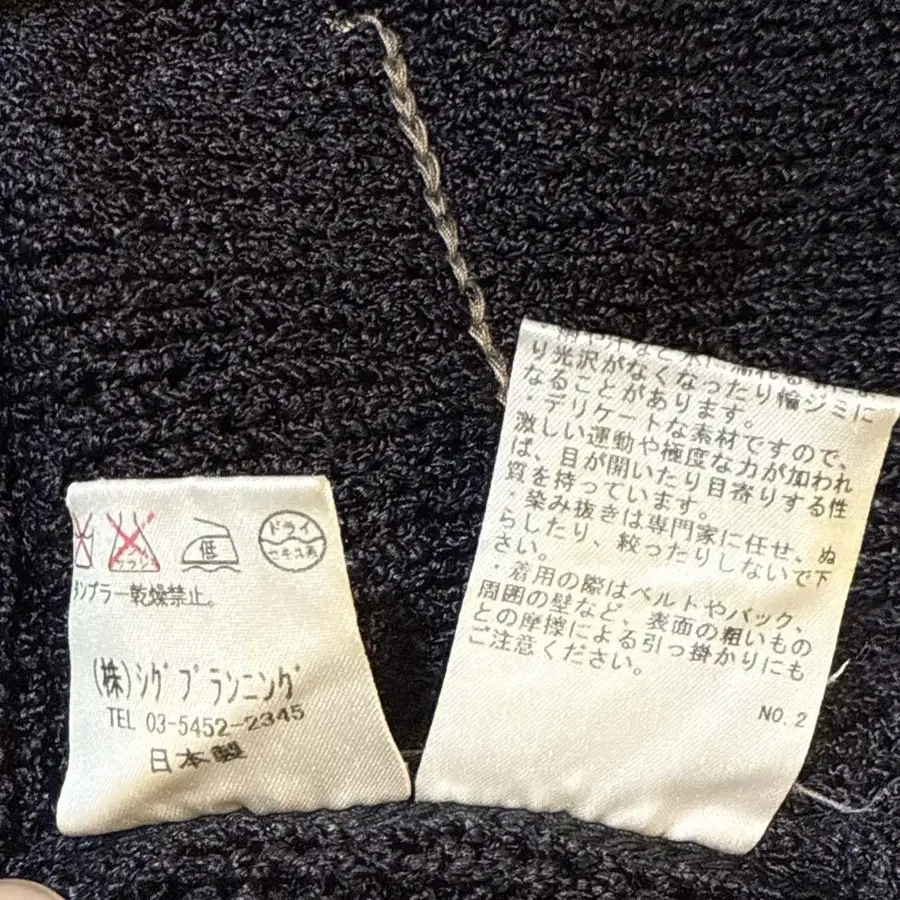 低
ドライ
セキユ系
タンブラー乾燥禁止。
(株)シグプランニング
TEL 03-5452-2345
日本製
り光沢がなくなったり輪ジミに
なることがあります。
・デリケートな素材ですので、
激しい運動や極度な力が加われ
ば、目が開いたり目寄りする性
質を持っています。
・染み抜きは専門家に任せ、ぬ
らしたり、絞ったりしないで下
さい。
・着用の際はベルトやバック、
周囲の壁など、表面の粗いもの
との摩擦による引っ掛かりにも
ご注意ください。
NO.2